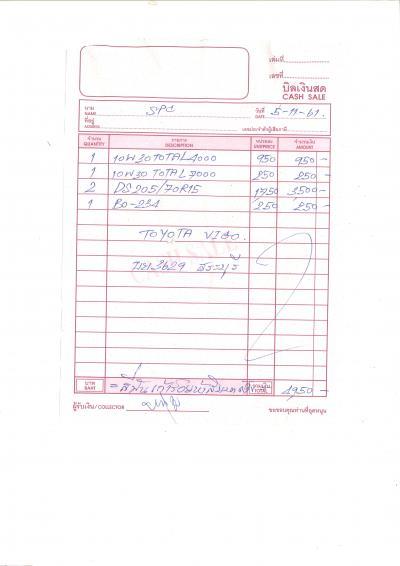 เล่มที่
เลขที่
บิลเงินสด
CASH SALE
นาม NAME SPC วันที่ DATE 5-11-61.
ที่อยู่ ADDRESS เลขประจำตัวผู้เสียภาษี
จำนวน QUANTITY รายการ DESCRIPTION หน่วยละ UNITPRICE จำนวนเงิน AMOUNT
1 10W30 TOTAL 4000 950 950 -
1 10W30 TOTAL 7000 250 250 -
2 DS 205/70R15 1750 3500 -
1 BO-234 250 250 -
TOYOTA VIGO.
3629 สระบุรี
CASH SALE
บาท BAHT = สี่พันเก้าร้อยห้าสิบบาท รวมเงิน TOTAL 4950 -
ผู้รับเงิน/COLLECTOR ขอขอบคุณท่านที่อุดหนุน